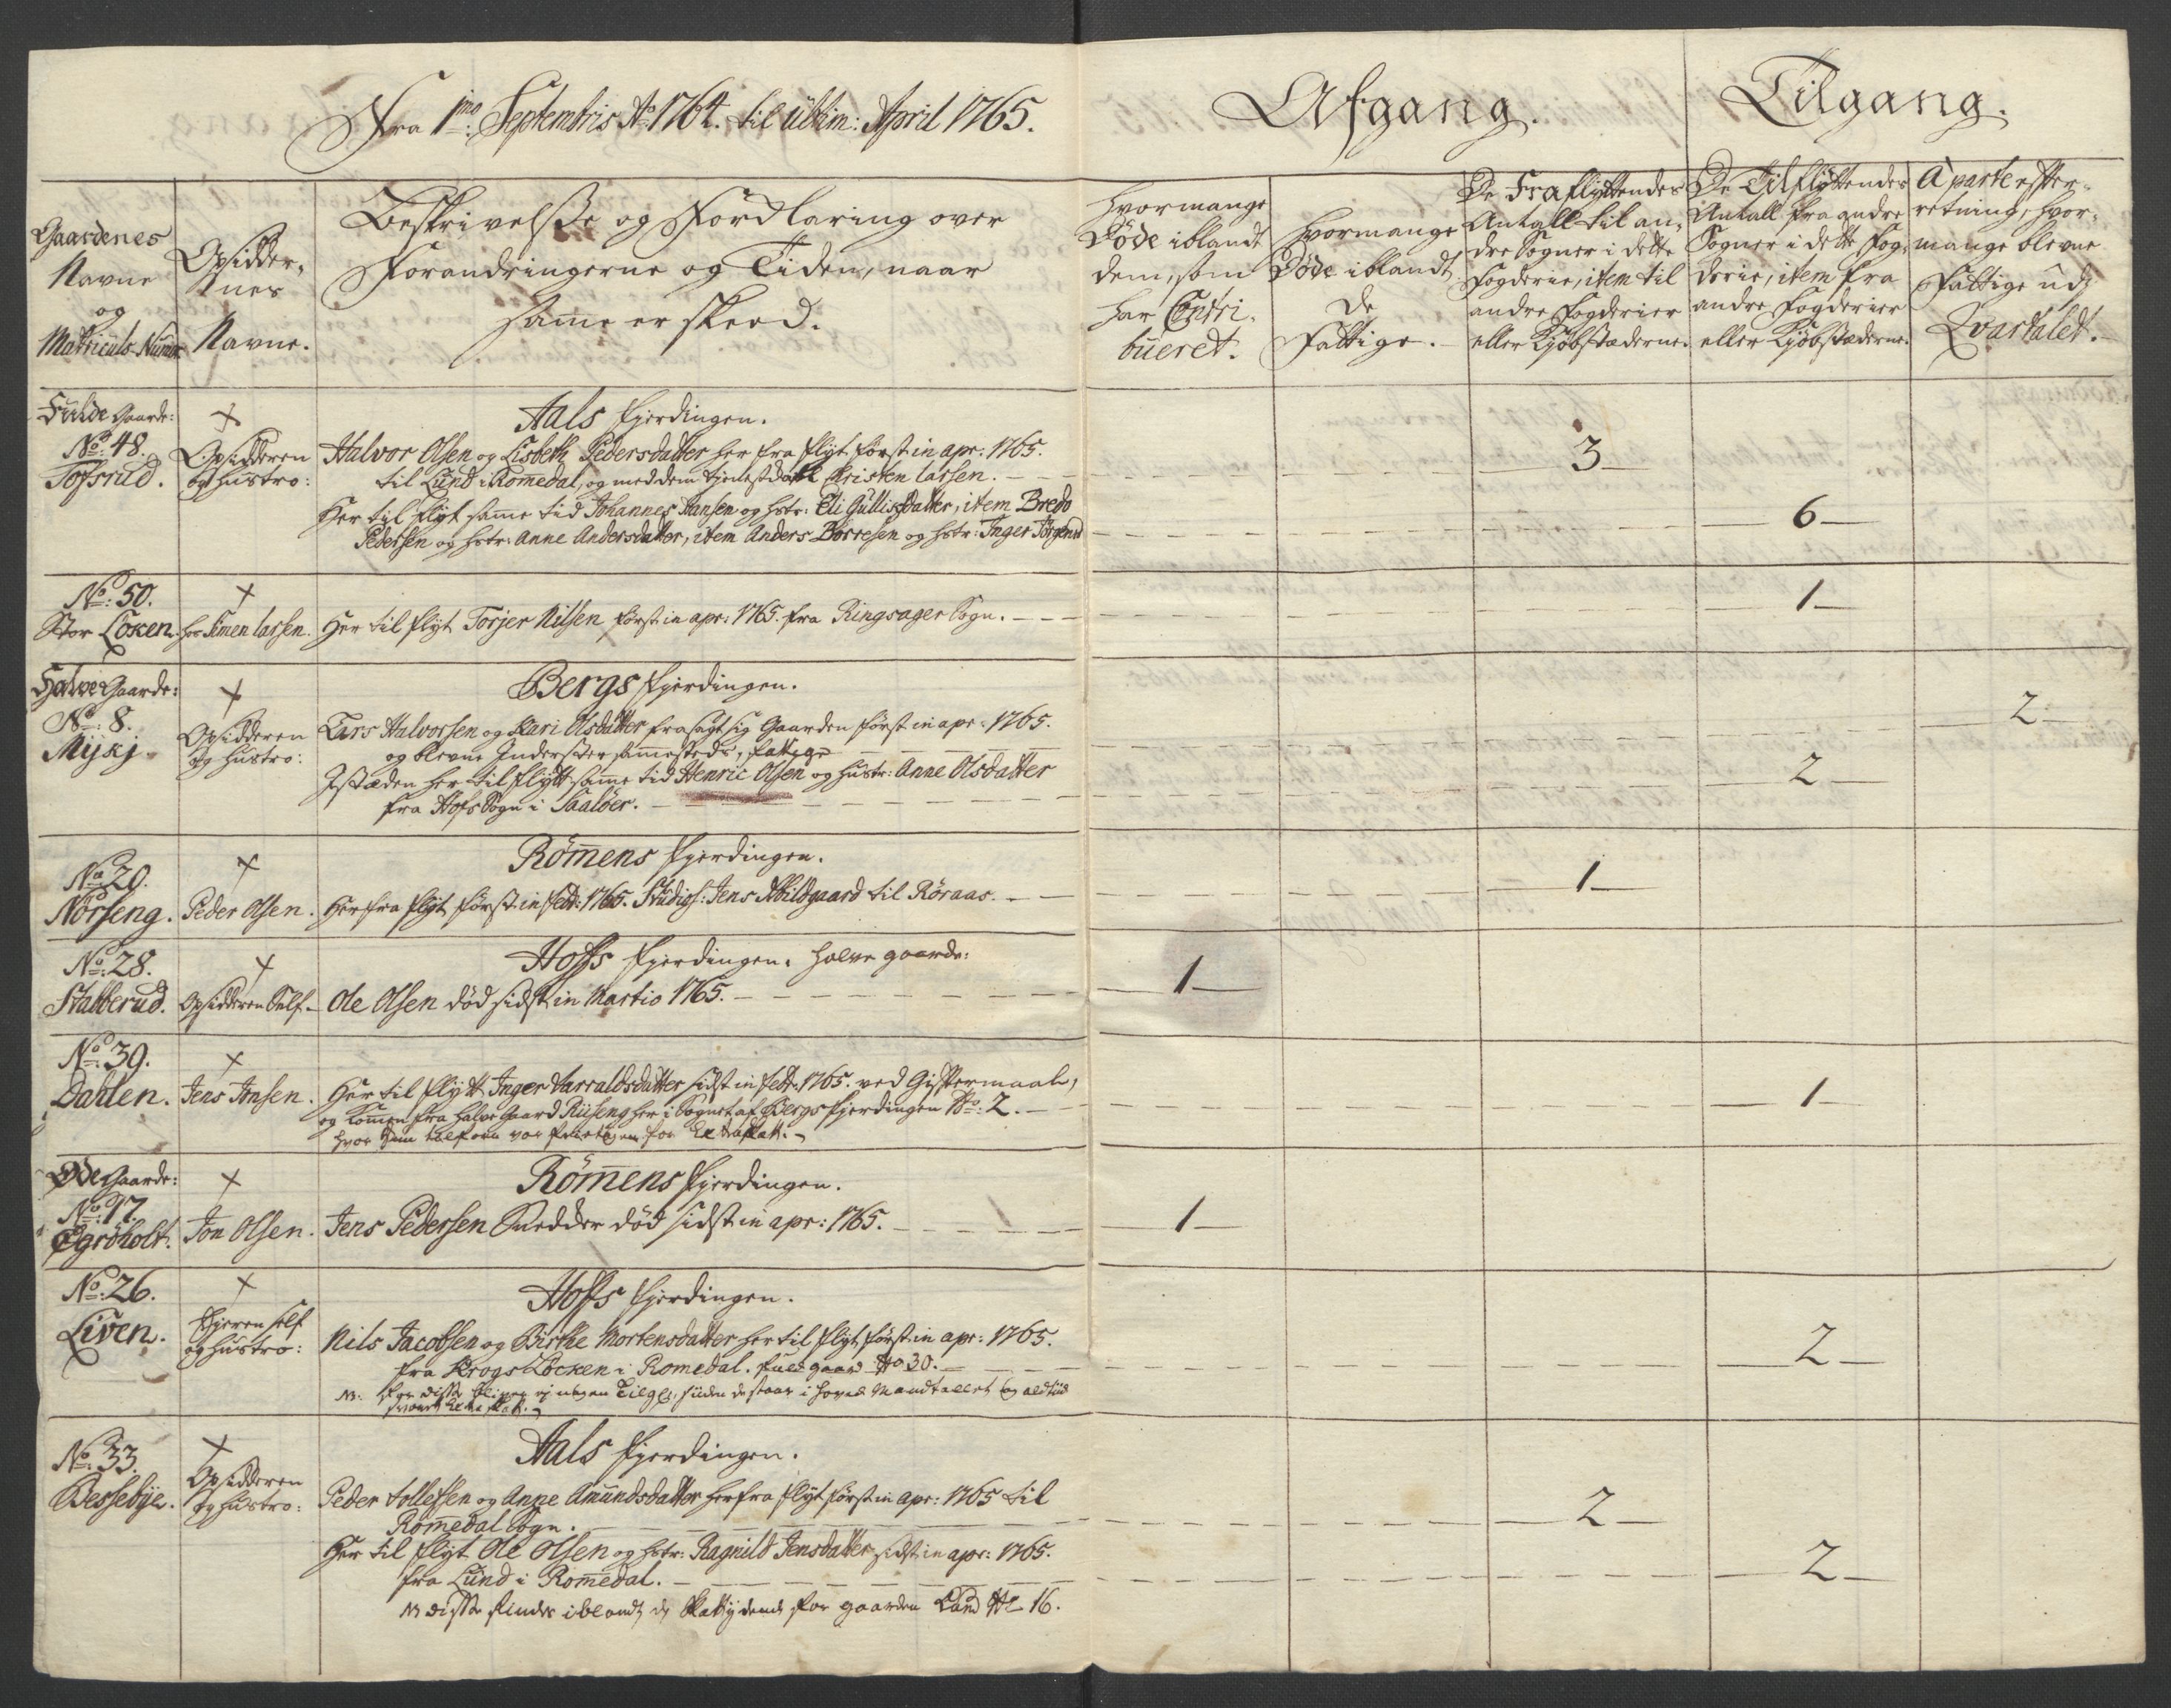 Fra 1mo: Septembris Ao: 1764. til ultim: April 1765.
Afgang.
Tilgang.
Gaardenes
Navne
og
Matriculs Numr
Opsidder,
nes
Navne.
Beskrivelsse og Fordklaring over
Forandringerne og Tiden, naar
same er skeed.
Hvormange
Døde iblandt
dem, som
har Contri,
bueret.
Hvormange
Døde iblandt
de
Fattige.
De Fraflyttendes
Antall til an,
dre Sogner i dette
Fogderie, item til
andre Fogderier
eller Kjøbstæderne.
De Tilflyttendes
Antall fra andre
Sogner i dette Fog,
derie, item fra
andre Fogderier
eller Kjøbstæderne.
Aparte efter,
retning, hvor,
mange blevne
Fattige udj
Qvartalet.
Fulde Gaarde:
No: 48.
Tofsrud.
+
Opsidderen
og Hustro:
Aals Fjerdingen.
Halvor Olsen og Lisbeth Pedersdatter her fra flyt først in apr: 1765.
til Lund i Romedal, og med dem Kristen Larsen.
3
Her til flyt same tid Johannes Hansen og Hstr: Eli Gullisdatter, item Bredo
Pedersen og Hstr: Anne Andersdatter, item Anders Børresen og Hstr: Inger
6
No: 50.
Stor Löken.
+
hos Simen Larsen.
Her til flyt Torjer Nilsen først in apr: 1765. fra Ringsager Sogn.
1
Halve Gaarde:
No: 8.
Mÿkj.
+
Opsidderen
og Hustro:
Bergs Fjerdingen.
Lars Halvorsen og Kari Olsdatter frasagt sig Gaarden først in apr: 1765.
og blevne Inderster sammesteds, fattige
2
Istæden her til flytt same tid Henric Olsen og Hustr: Anne Olsdatter
fra Hofs Sogn i Saalöer.
2
No: 20.
Nörseng.
+
Peder Olsen.
Römens Fjerdingen.
Her fra flyt først in Febr: 1765. Studios: Jens Abildgaard til Röraas.
1
No: 28.
Stabberud.
+
Opsidderen Self
Hoffs Fjerdingen. halve gaarde:
Ole Olsen død sidst in Martio 1765.
1
No: 39.
Dahlen.
+
Jens Jonsen.
Her til flytt Inger Harraldsdatter sidst in Febr: 1765. ved Giftermaal,
og Kommen fra halve Gaard Riiseng her i Sognet af Bergs Fjerdingen No: 2.
hvor hun var for Extraskatt.
1
Øde Gaarde:
No: 17.
Ögröholt.
+
Jon Olsen.
Römens Fjerdingen.
Jens Pedersen Snedder død sidst in apr: 1765.
1
No: 26.
Liven.
+
Ejeren self
og Hustro:
Hoffs Fjerdingen.
Nils Jacobsen og Birthe Mortensdatter her til flyt først in apr: 1765.
fra Krogs Löcken i Romedal. fuld gaard No 30.
2
NB: For disse bliver ej nogen Tilg, siden de staar i Hoved Mandtallet og altiid
svaret Extra skatt.
No: 33.
Bessebÿe.
+
Opsidderen
og Hustro:
Aals Fjerdingen.
Peder Tollefsen og Anne Amundsdatter her fra flyt først in apr: 1765 til
Romedal Sogn.
2
Her til flyt Ole Olsen og Hstr: Ragnild Jensdatter sidst in apr: 1765.
fra Lund i Romedal.
2
NB disse findes iblandt de Skattydende for gaarden Lund No 16.